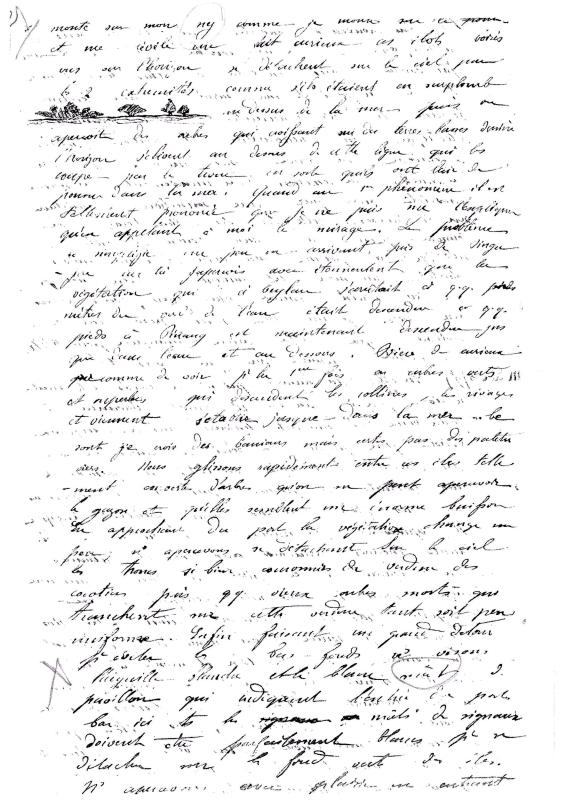 monté sur mon comme je monte sur
et me fait curieux ces ilots boisés
vus sur l'horizon se détachent sur le ciel par
les 2 extremités comme s'ils étaient en surplomb
au dessus de la mer puis on
aperçoit des arbres qui croissant sur des terres basses derrière
l'horizon s'élèvent au dessus de cette ligne qui les
coupe par le tronc en sorte qu'ils ont l'air de
pousser dans la mer. Quand au 1er phénomène il est
tellement prononcé que je ne puis me l'expliquer
qu'en appelant à moi le mirage. Le problème
se un peu en arrivant près de
car là j'aperçois avec étonnement que la
végétation qui à Ceylan s'arrêtait à q.q.
mètres du de l'eau était descendue à q.q.
pieds à Pinang est maintenant descendue jus
que dans l'eau et au dessous. Rien de curieux
comme de voir p. la 1ère fois ces arbres verts
et superbes qui descendent les collines, les rivages
et viennent s'établir jusque dans la mer. Ce
sont je crois des banians mais certes pas des palétu
viers. Nous glissons rapidement entre ces iles telle
-ment couvertes d'arbres qu'on ne peut apercevoir
le gazon et qu'elles semblent un énorme buisson
En approchant du port la végétation change un
peu. n. apercevons se détachant sur le ciel
les troncs si bien couronnés de verdure des
cocotiers puis q.q. vieux arbres morts qui
tranchent sur cette verdure tant soit peu
uniforme. Enfin faisant un grand détour
p. éviter les bas fonds n. visons
l'aiguille blanche et le blanc mât de
pavillon qui indiquent l'entrée du port
car ici ts les mâts de signaux
doivent être parfaitement blancs p. se
détacher sur le fond vert des iles.
N. apercevons avec plaisir en entrant